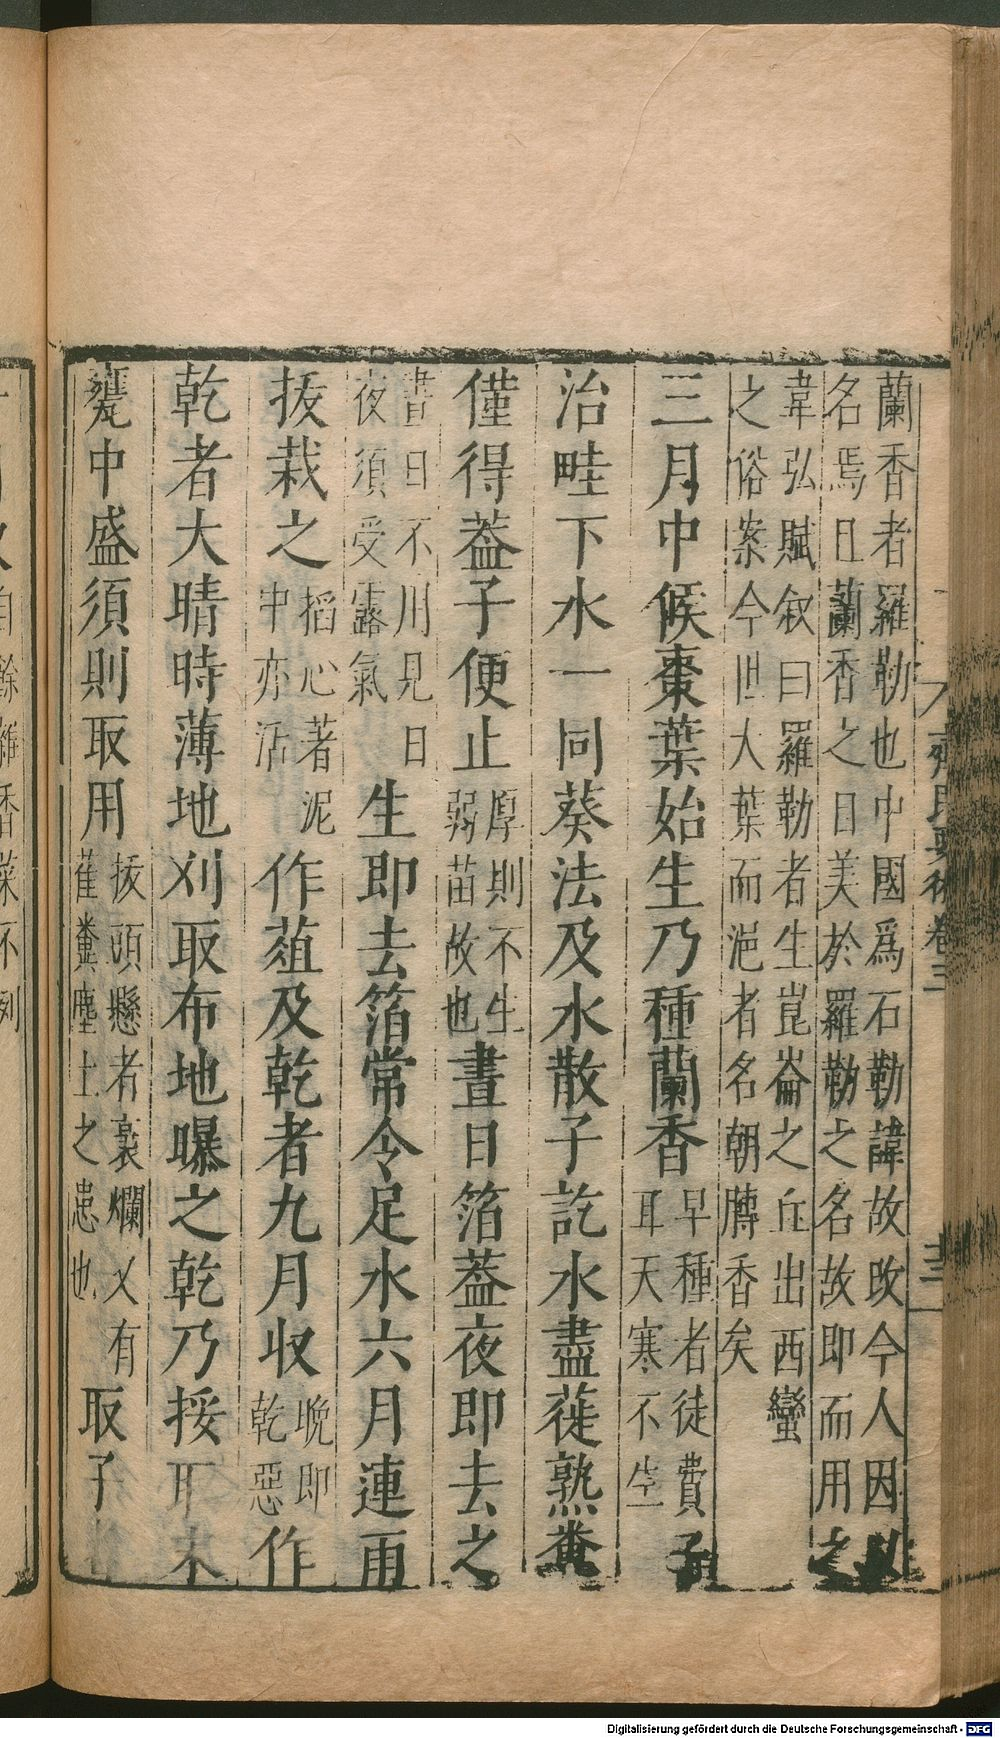 蘭香者羅勒也中國爲石勒諱故改今人因以
名焉且蘭香之目美於羅勒之名故即而用之
韋弘賦叙曰羅勒者生崑崙之丘出西蠻
之俗案今世大葉而浥者名朝䏝香矣
三月中候棗葉始生乃種蘭香
早種者徒費子
耳天寒不生
治畦下水一同葵法及水散子訖水盡蓰熟糞
僅得葢子便止
厚則不生
弱苗故也
晝日箔葢夜即去之
晝日不用見日
夜須受露氣
生即去箔常令足水六月連雨
拔栽之
掐心著泥
中亦活
作葅及乾者九月收
晚即
乾惡
作
乾者大晴時薄地刈取布地曝之乾乃挼取末
甕中盛須則取用
拔頭懸者裛爛又有
雀糞塵土之患也
取子
齊民要術卷三
十三
餘雜香菜不列
Digitalisierung gefördert durch die Deutsche Forschungsgemeinschaft - DFG